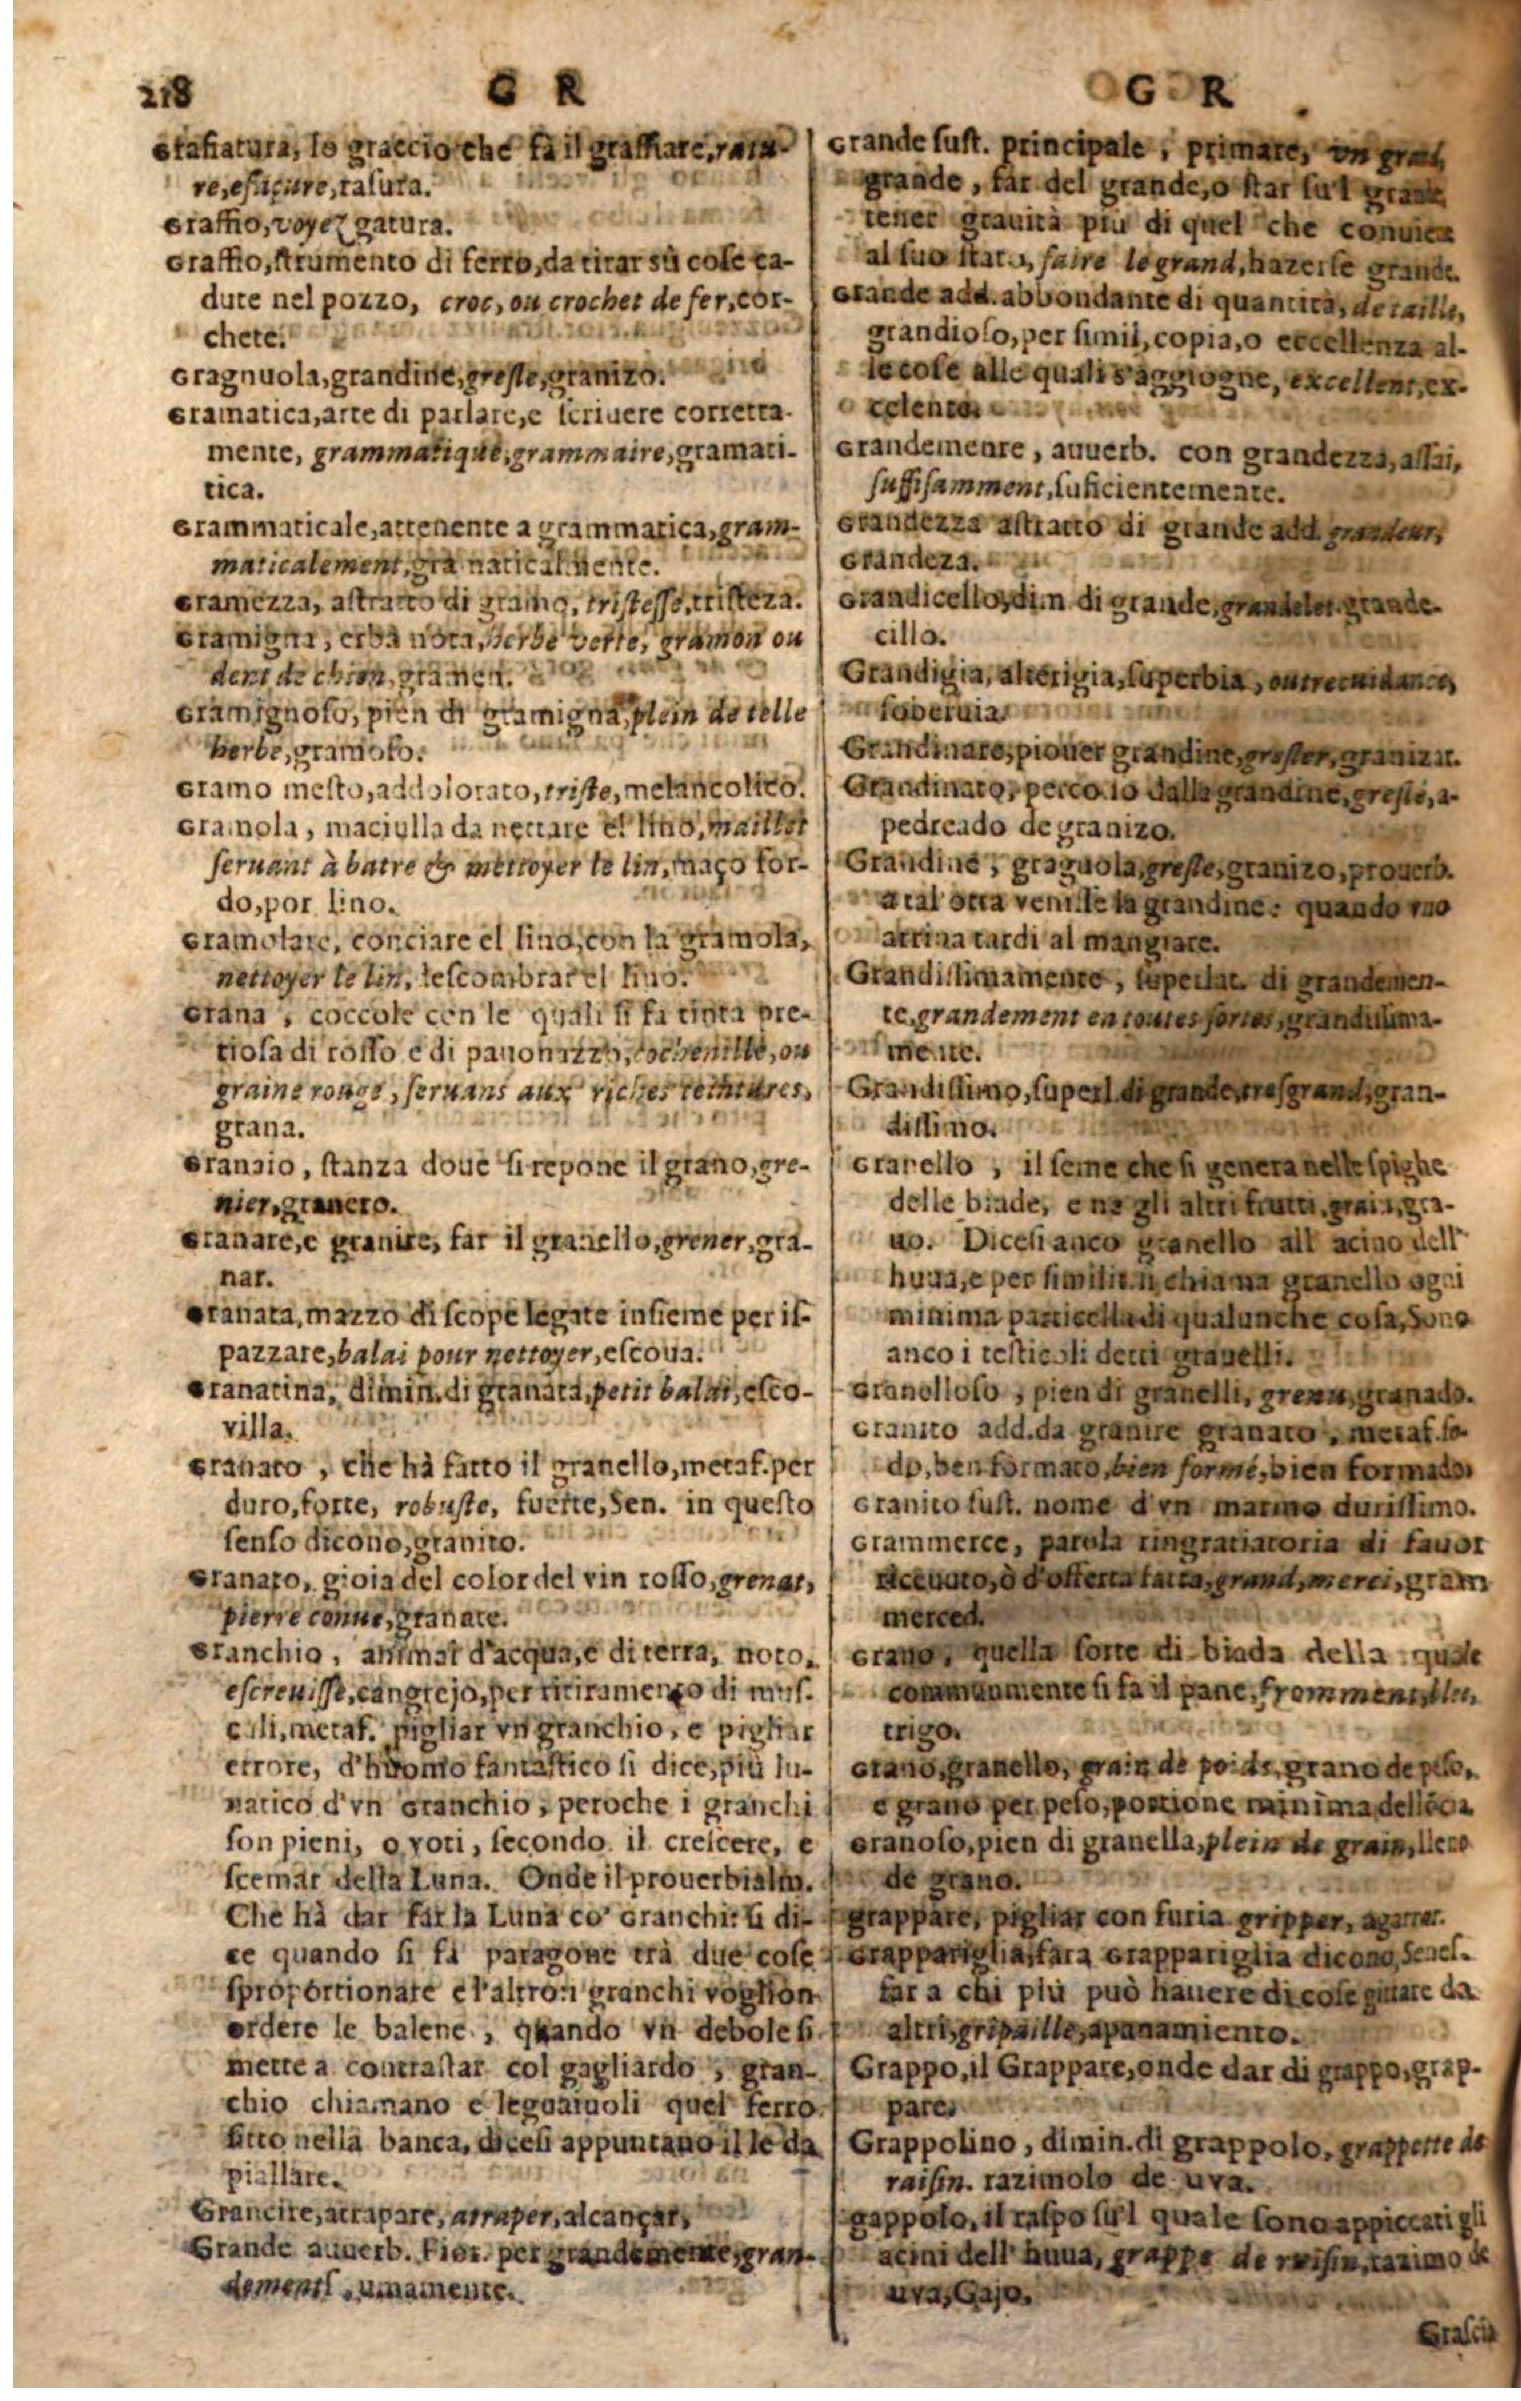 218 G R G R
Grafiatura, lo graccio che fà il graffiare, ratu-
re, esraçure, rasura.
Graffio, voyez gatura.
Graffio, strumento di ferro, da tirar sù cose ca-
dute nel pozzo, croc, ou crochet de fer, cor-
chete.
Gragnuola, grandine, gresle, granizo.
Gramatica, arte di parlare, e scriuere corretta-
mente, grammatique, grammaire, gramati-
tica.
Grammaticale, attenente a grammatica, gram-
maticalement, gramaticalmente.
Gramezza, astratto di gramo, tristesse, tristeza.
Gramigna, erba nota, herbe verte, gramon ou
dent de chien, gramen.
Gramignoso, pien di gramigna, plein de telle
herbe, gramoso.
Gramo mesto, addolorato, triste, melancolico.
Gramola, maciulla da nettare el lino, maillet
seruant à batre & nettoyer le lin, maço sor-
do, por lino.
Gramolare, conciare el lino, con la gramola,
nettoyer le lin, descombrar el lino.
Grana, coccole con le quali si fa tinta pre-
tiosa di rosso e di pauonazzo, cochenille, ou
graine rouge, seruans aux riches teintures,
grana.
Granaio, stanza doue si repone il grano, gre-
nier, granero.
Granare, e granire, far il granello, grener, gra-
nar.
Granata, mazzo di scope legate insieme per is-
pazzare, balai pour nettoyer, escoua.
Granatina, dimin. di granata, petit balai, esco-
villa.
Granato, che hà fatto il granello, metaf. per
duro, forte, robuste, fuerte, Sen. in questo
senso dicono, granito.
Granato, gioia del color del vin rosso, grenat,
pierre conue, granate.
Granchio, animal d'acqua, e di terra, noto,
escreuisse, cangrejo, per ritiramento di mus-
culi, metaf. pigliar vn granchio, e pigliar
errore, d'huomo fantastico si dice, più lu-
natico d'vn Granchio, peroche i granchi
son pieni, o voti, secondo il crescere, e
scemar della Luna. Onde il prouerbialm.
Che hà dar far la Luna co' Granchi: si di-
ce quando si fà paragone trà due cose
sproportionate e l'altro: i granchi voglion
ordere le balene, quando vn debole si
mette a contrastar col gagliardo, gran-
chio chiamano e leguaiuoli quel ferro
fitto nella banca, dicesi appuntano il le da
piallare.
Grancire, atrapare, atraper, alcançar,
Grande auuerb. Fior. per grandemente, gran-
dement, umamente.
Grande sust. principale, primare, vn grand,
grande, far del grande, o star su'l grande
tener grauità più di quel che conuien
al suo stato, faire le grand, hazerse grande.
Grande add. abbondante di quantità, de taille,
grandioso, per simil, copia, o eccellenza al-
le cose alle quali s'aggiogne, excellent, ex-
celento.
Grandemenre, auuerb. con grandezza, assai,
suffisamment, suficientemente.
Grandezza astratto di grande add. grandeur,
Grandeza.
Grandicello, dim. di grande, grandelet, grande-
cillo.
Grandigia, alterigia, superbia, outrecuidance,
soberuia.
Grandinare, piouer grandine, gresler, granizar.
Grandinato, percosso dalla grandine, greslé, a-
pedreado de granizo.
Grandine, gragnola, gresle, granizo, prouerb.
a tal otta venisse la grandine: quando vno
arriua tardi al mangiare.
Grandissimamente, superlat. di grandemen-
te, grandement en toutes sortes, grandissima-
mente.
Grandissimo, superl. di grande, tresgrand, gran-
dissimo.
Granello, il seme che si genera nelle spighe
delle biade, e ne gli altri frutti, grain, gra-
no. Dicesi anco granello all' acino dell'
huua, e per similit. si chiama granello ogni
minima particella di qualunche cosa, Sono
anco i testicoli detti granelli.
Granolloso, pien di granelli, grenu, granado.
Granito add. da granire granato, metaf. so-
do, ben formato, bien formé, bien formado.
Granito sust. nome d'vn marmo durissimo.
Grammerce, parola ringratiatoria di fauor
riceuuto, ò d'offerta fatta, grand, merci, gram
merced.
Grano, quella sorte di biada della quale
communmente si fa il pane, fromment, blet,
trigo.
Grano, granello, grain de poids, grano de peso,
e grano per peso, portione minima dell'ōcia
Granoso, pien di granella, plein de grain, lleno
de grano.
grappare, pigliar con furia gripper, agarrar.
Grappariglia, fara Grappariglia dicono, Senes.
far a chi più può hauere di cose gittare da
altri, gripaille, apanamiento.
Grappo, il Grappare, onde dar di grappo, grap-
pare.
Grappolino, dimin. di grappolo, grappette de
raisin. razimolo de uva.
gappolo, il raspo su'l quale sono appiccati gli
acini dell' huua, grappe de raisin, razimo de
uva, Gajo.
Grascia